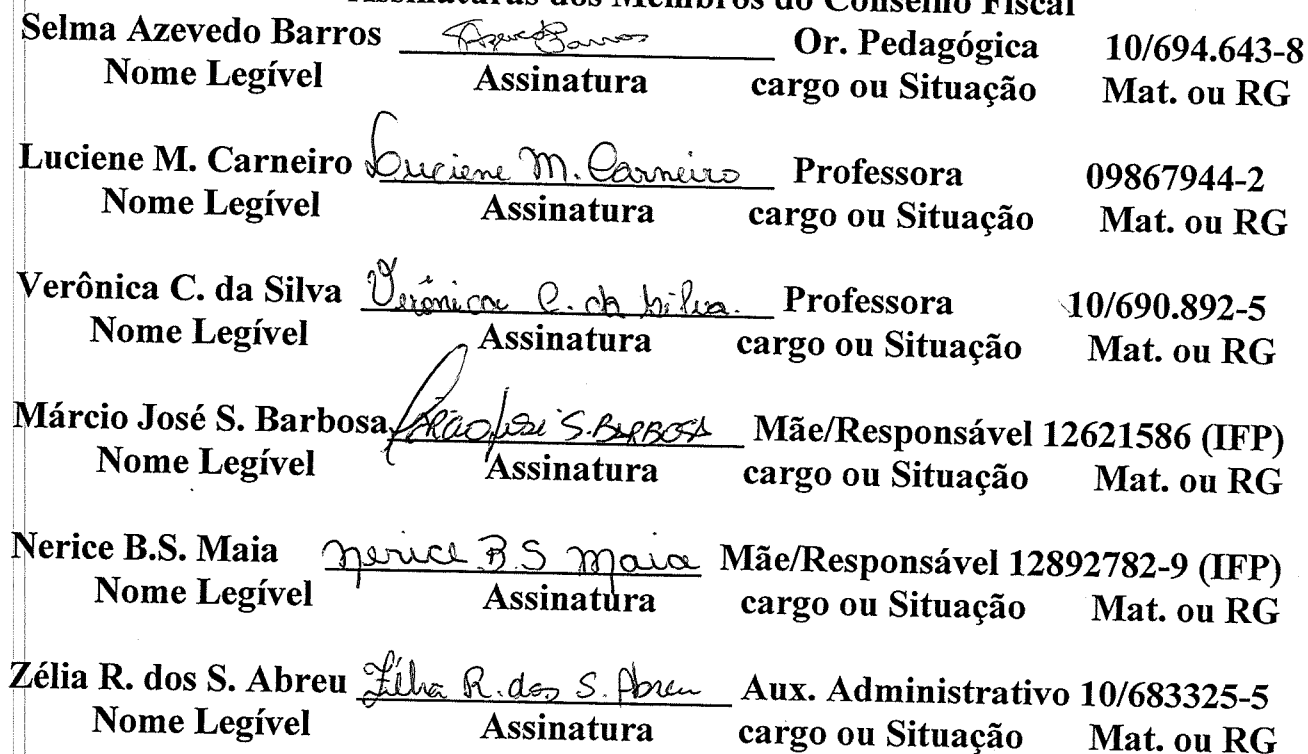 Assinaturas dos Membros do Conselho Fiscal
Selma Azevedo Barros Azevedo Barros Or. Pedagógica 10/694.643-8
Nome Legível Assinatura cargo ou Situação Mat. ou RG
Luciene M. Carneiro Luciene M. Carneiro Professora 09867944-2
Nome Legível Assinatura cargo ou Situação Mat. ou RG
Verônica C. da Silva Verônica C. da Silva. Professora 10/690.892-5
Nome Legível Assinatura cargo ou Situação Mat. ou RG
Márcio José S. Barbosa Márcio José S. BARBOSA Mãe/Responsável 12621586 (IFP)
Nome Legível Assinatura cargo ou Situação Mat. ou RG
Nerice B.S. Maia Nerice B.S Maia Mãe/Responsável 12892782-9 (IFP)
Nome Legível Assinatura cargo ou Situação Mat. ou RG
Zélia R. dos S. Abreu Zélia R. dos S. Abreu Aux. Administrativo 10/683325-5
Nome Legível Assinatura cargo ou Situação Mat. ou RG